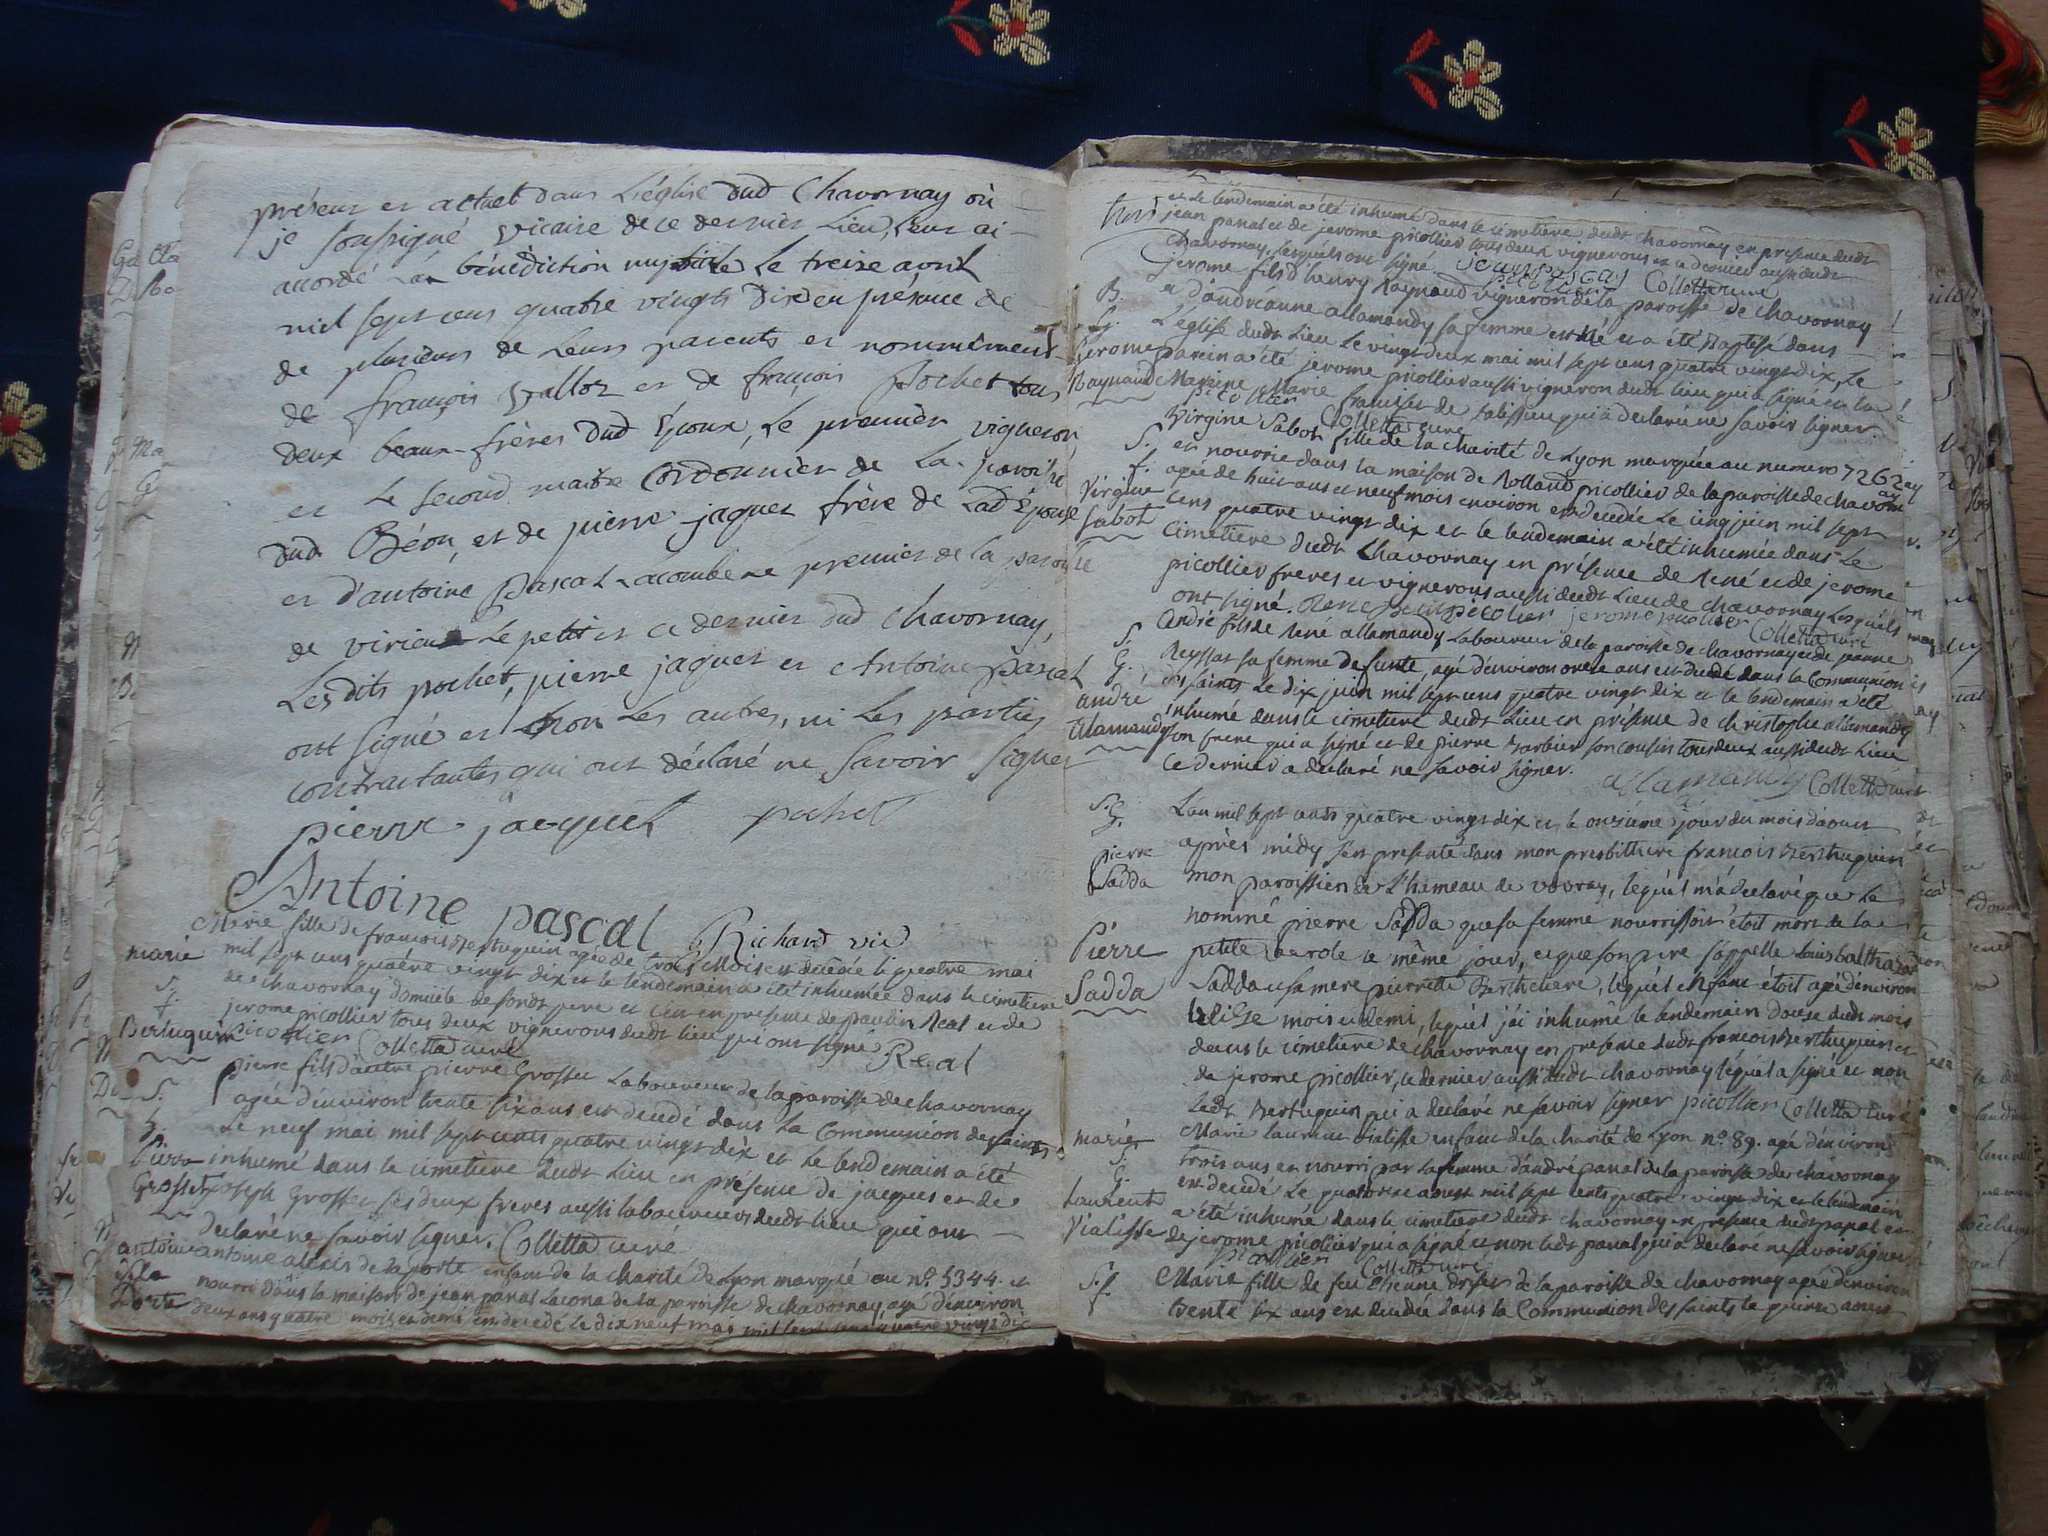 présens et actuel dans L'église dud Chavornay où
je soussigné vicaire de ce dernier Lieu, leur ai
accordé La bénédiction nuptiale Le treize avril
mil sept cens quatre vingts Dix en présence de
de plusieurs de Leurs parents et nommément
de françois vallos et de françois pochet tous
deux beaux-frères dud Epoux, Le premier vigneron,
et Le second maitre Cordonnier de La paroisse
dud Béon, et de pierre jaquet frère de Lad Epouse
et d'antoine Pascal Lacombe Le premier de la paroisse
de virieu Le petit et ce dernier dud Chavornay,
Lesdits pochet, pierre jaquet et Antoine Pascal
ont signé et non Les autres, ni Les parties
contractantes qui ont déclaré ne savoir signer
pierre jacquet pochet
Antoine pascal Richard vic
Marie fille de francois Berthuguin agée de trois mois est décédée le quatre mai
marie mil sept cens quatre vingt dix et le lendemain a été inhumée dans le cimetiere
S. de chavornay domicile de sondt pere et ce en presence de paulin Real et de
f. jerome picollier tous deux vignerons dudt lieu qui ont signé Real
Bertuguin picollier Colletta curé
S. pierre fils d'autre pierre Grosset Laboureur de la paroisse de chavornay
agée d'environ trente six ans est decedé dans La Communion des saints
G. Le neuf mai mil sept cents quatre vingt dix et Le lendemain a été
pierre inhumé dans le cimetiere dudt Lieu en présence de jacques et de
Grosset joseph Grosset ses deux freres aussi laboureurs dudt lieu qui ont
declaré ne savoir signer. Colletta curé
antoine antoine alexis de laporte enfant de la charité de Lyon marqué au n°. 5344. et
dela nourri dans la maison de jean panat Lacona de la paroisse de chavornay, agé d'environ
Porte deux ans quatre mois et demi est decedé Le dix neuf mai mil sept cens quatre vingt dix
et Le lendemain a été inhumé dans le cimetiere dudt chavornay en presence dudt
jean panat et de jerome picollier tous deux vignerons aussi dudt
chavornay, lesquels ont signé. jean pascal picollier Colletta curé
B. jerome fils d'henry Raynaud vigneron de la paroisse de chavornay
G. et d'andréanne allamandy sa femme est né et a été Baptisé dans
jerome L'église dudt Lieu Le vingt deux mai mil sept cens quatre vingt dix, Le
Raynaud parein a été jerome picollier aussi vigneron dudt lieu qui a signé et la
Mareine Marie de talissieu qui a declaré ne savoir signer
picollier Colletta curé
S. Virgine Sabot fille de la charité de Lyon marquée au numero 7262
f. et nourrie dans la maison de Rolland picollier de la paroisse de chavornay
Virgine agée de huit ans et neuf mois environ est decedée Le cinq juin mil sept
Sabot cens quatre vingt dix et le lendemain a été inhumée dans Le
cimetiere dudt Chavornay en présence de René et de jerome
picollier freres et vignerons aussi dudt Lieu de chavornay Lesquels
ont signé. Rene picolier jerome picolier Colletta curé
S. André fils de René allamandy Laboureur de la paroisse de chavornay et de jeanne
G. Reyssat sa femme defunte, agé d'environ onze ans est decedé dans la Communion
andré des saints Le dix juin mil sept cens quatre vingt dix et le lendemain a été
allamandy inhumé dans le cimetiere dudt Lieu en présence de christophe allamandy
son frere qui a signé et de pierre Barbier son cousin tous deux aussi dudt Lieu
Ce dernier a declaré ne savoir signer. allamandy Colletta curé
S. G. Lan mil sept cents quatre vingt dix et le onzième jour du mois d'aoust
pierre après midy s'est presenté dans mon presbittere francois Berthuguin
Sadda mon paroissien de L'hameau de vovray, lequel m'a declaré que Le
nommé pierre Sadda que sa femme nourrissoit étoit mort de la
Pierre petite verole le même jour, et que son pere s'appelle Louis balthazar
Sadda Sadda et sa mere pierrette Berthelere, lequel enfant étoit agé d'environ
treize mois et demi, lequel j'ai inhumé le lendemain douze dudt mois
dans le cimetiere de chavornay en presence dudt francois Berthuguin et
de jerome picollier, ce dernier aussi dudt chavornay lequel a signé et non
Ledt Bertuguin qui a declaré ne savoir signer picollier Colletta curé
marie Marie laurent vialisse enfant de la charité de Lyon n°. 89. agé d'environ
S. trois ans et nourri par la femme d'andré panat de la paroisse de chavornay
G. est decedé Le quatorze aoust mil sept cents quatre vingt dix et le lendemain
Laurent a été inhumé dans le cimetiere dudt chavornay en presence dudt panat et
Vialisse de jerome picollier qui a signé et non ledt panat qui a declaré ne savoir signer
picollier Colletta curé
S. f. Marie fille de feu Etienne de la paroisse de chavornay agée d'environ
trente six ans est decedée dans la Communion des saints le quinze aoust